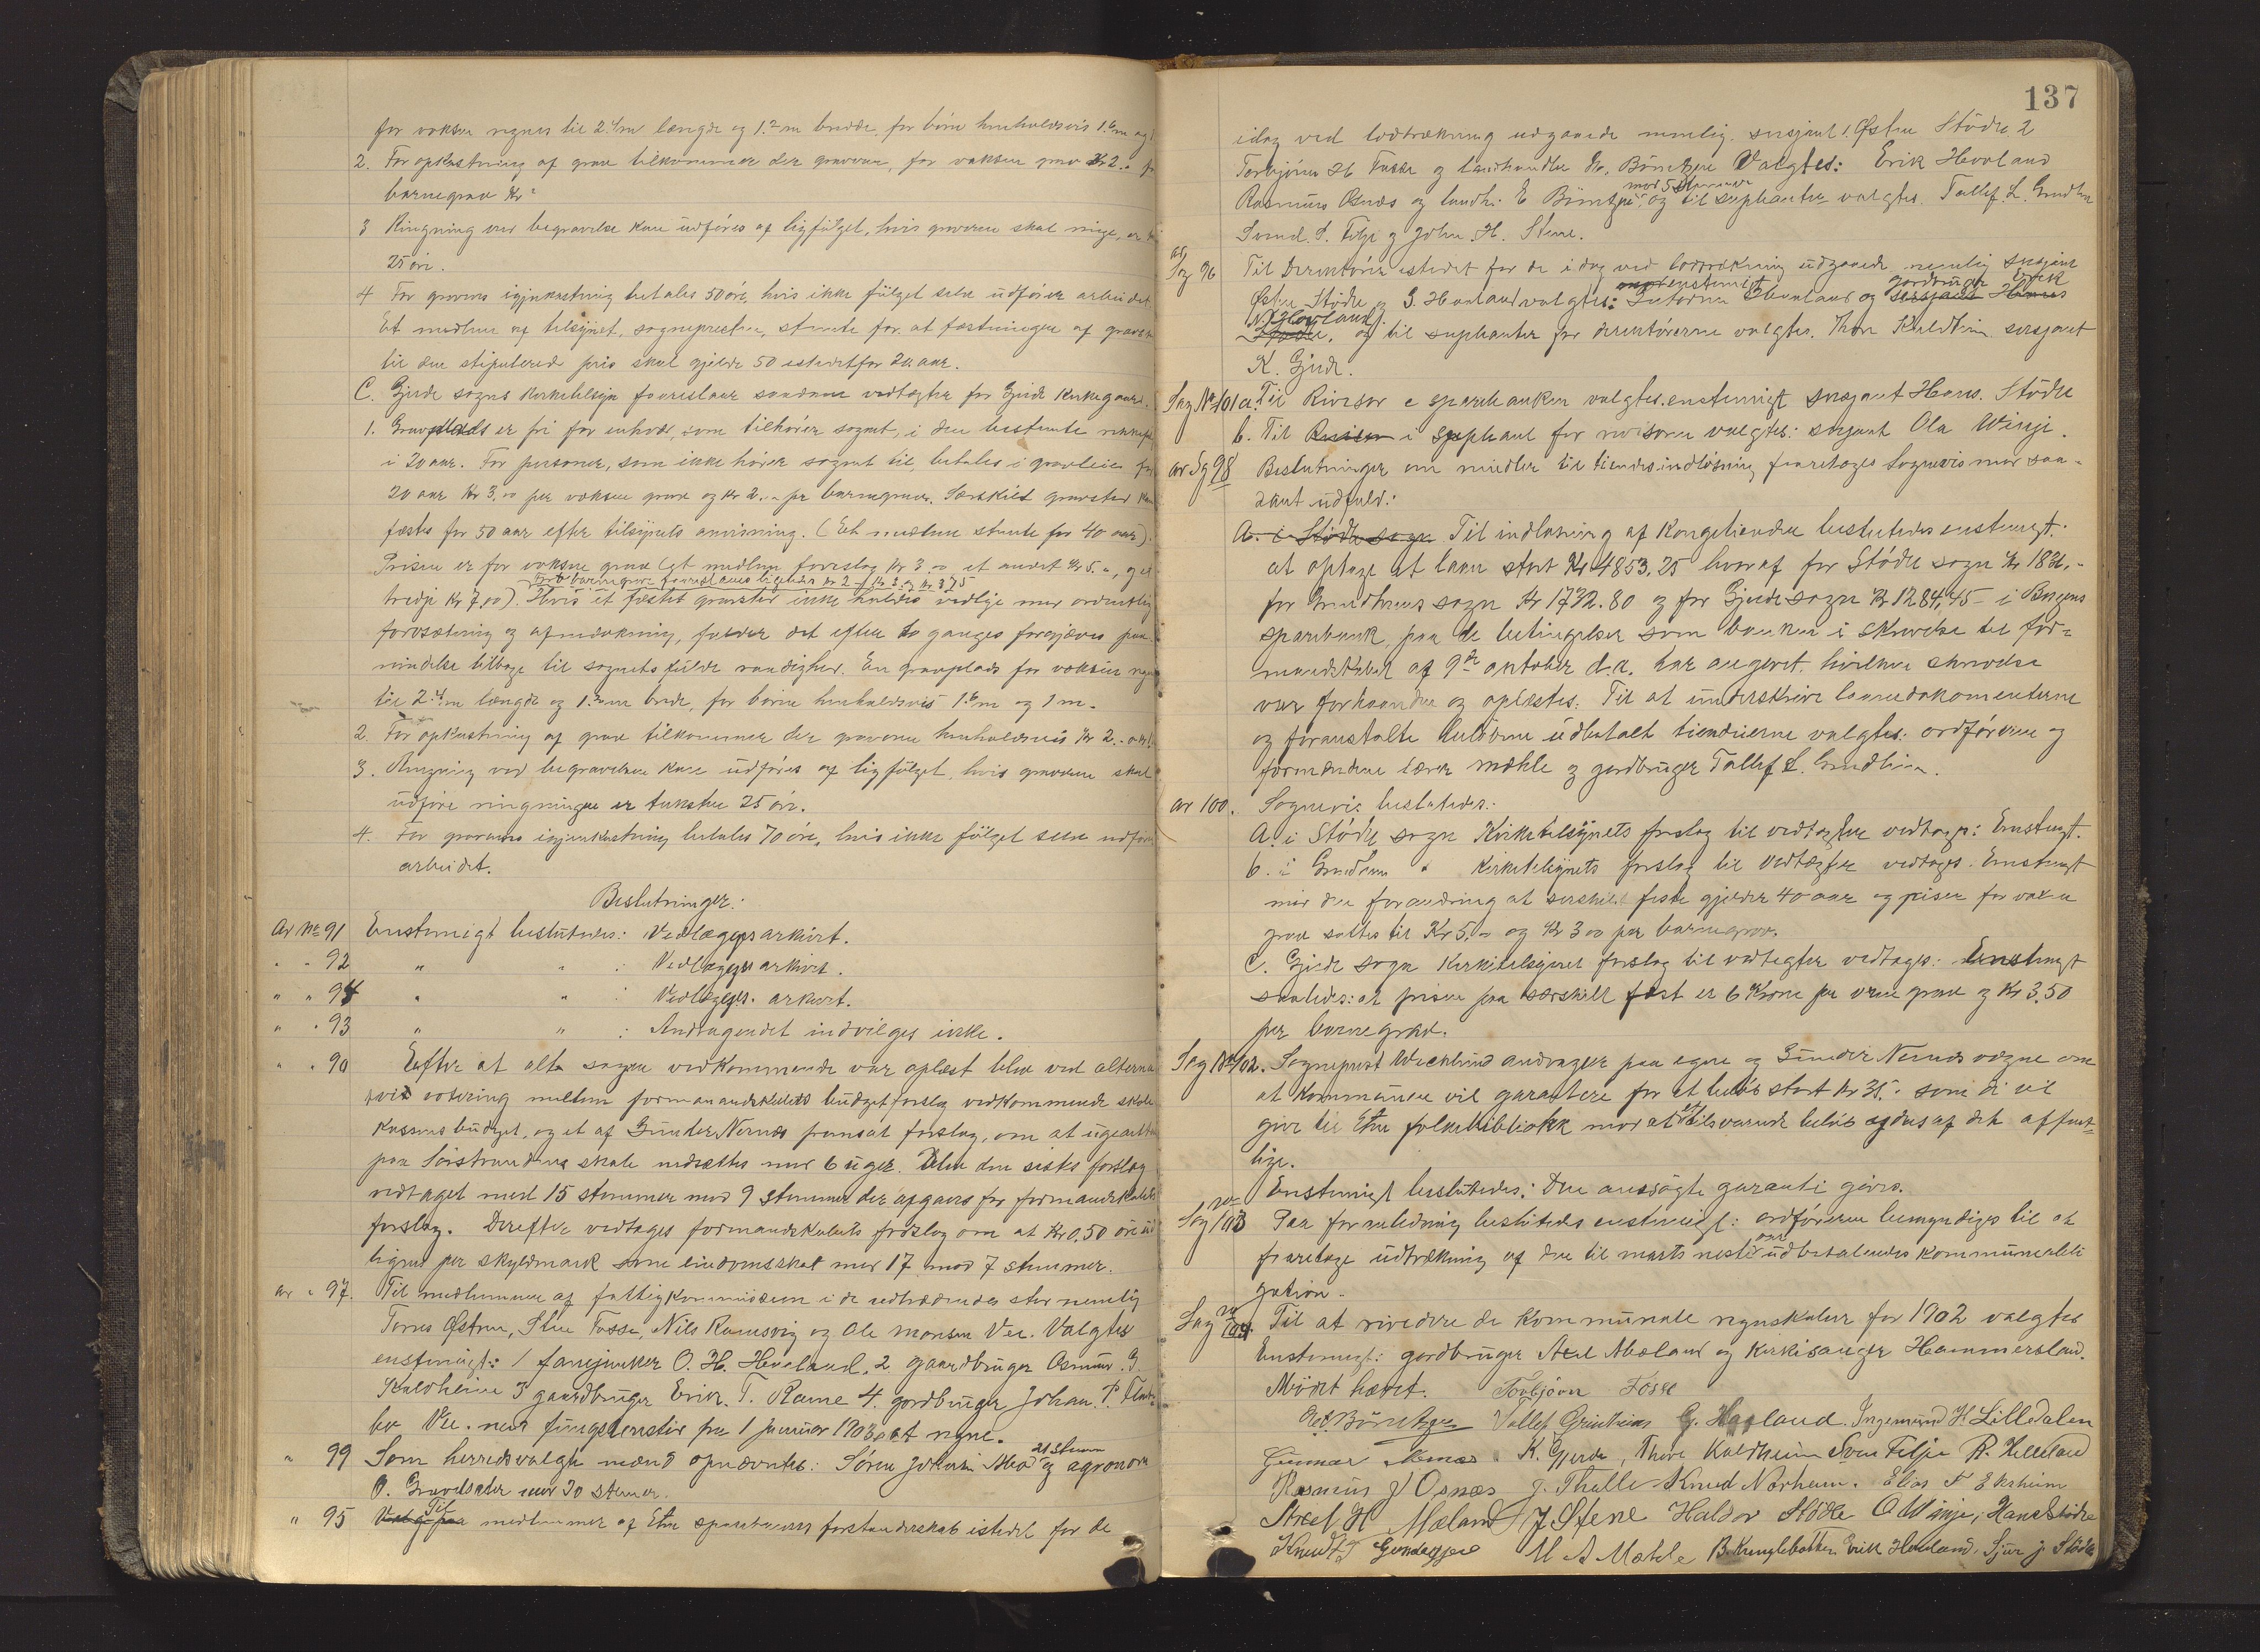 for voksen regnes til 2.4m længde og 1.2m bredde, for børn henholdsvis 1.6m og 1
2. For opkastning af grav tilkommer der graveren, for voksen grav Kr 2.- f
barnegrav Kr
3 Ringning ved begravelse kan udføres af ligfølget, hvis graveren skal ringe, er
25 øre.
4 For gravens igjenkastning betales 50 øre, hvis ikke følget selv udfører arbeidet.
Et medlem af tilsynet, sognepresten, stemte for, at fæstningen af gravst
til den stipulerede pris skal gjelde 50 istedetfor 20 aar.
C. Gjerde sogns kirketilsyn foreslaar saadanne vedtægter for Gjerde kirkegaard.
1. Gravplads er fri for enhver, som tilhører sognet, i den bestemte rækkefø
i 20 aar. For personer, som ikke hører sognet til, betales i gravleie for
20 aar Kr 3.00 per voksen grav og Kr 2.- pr barnegrav. Særskilt gravsted kan
fæstes for 50 aar efter tilsynets anvisning. (Et medlem stemte for 40 aar).
Prisen er for voksen grav (et medlem foreslog Kr 3.00 et andet Kr 5.-, og et
For barnegrav foreslaaes ligeledes kr 2- Kr 3 og kr 3,75
tredje Kr 7,00). Hvis et fæstet gravsted ikke holdes vedlige med ordentlig
forsætning og afmerkning, falder det efter to ganges forgjæves paa-
mindelse tilbage til sognets fulde raadighed. En gravplads for voksen regnes
til 2.4m længde og 1.2m brede, for børn henholdsvis 1.6m og 1m.
2. For opkastning af grav tilkommer der graveren henholdsvis Kr 2.- og 1.
3. Ringning ved begravelsen kan udføres af ligfølget, hvis graveren skal
udføre ringningen er taksten 25 øre.
4. For gravens igjenkastning betales 70 øre, hvis ikke følget selv udfører
arbeidet.
Beslutninger:
Ar No 91 Enstemigt beslutedes: Vedlægges arkivet.
" " 92 " " : Vedlægges arkivet.
" " 94 " " : Vedlægges arkivet.
" " 93 " " : Andragendet indvilges ikke.
" " 90 Efter at alt sagen vedkommende var oplæst blev ved alterna
tvis votering mellem formandskabets budgetforslag vedkommende skole
kassens budget, og et af Gunder Nernæs fremsat forslag, om at ugeantallet
paa Sørstrandens skole nedsættes med 6 uger. Blev den sidste forslag
vedtaget med 15 stemmer mod 9 stemmer der afgaves for formandskabets
forslag. Derefter vedtages formandskabets forslag om at Kr 0.50 øre ud
lignes per skyldmark som eiendomsskat med 17 mod 7 stemmer.
ar " 97. Til medlemmer af fattigkommissionen i de udtrædendes sted nemlig
Tores Østrem, Sten Fosse, Nils Ramsvig og Ole Monsen Vee. Valgtes
enstemigt: 1 fanejunker O. H. Hovland, 2 gaardbruger Asmund G.
Kaldheim 3 gaardbruger Erik T. Rame 4. gordbruger Johan P.
bø Vee. med fungstenstid fra 1 januar 1903 at regne.
" 99 Som herredsvalgte mænd opnævntes: Søren Johnsen Mæ 21 stem og agronom
O. Gravelsæter med 20 stemer.
" 95 Til medlemmer af Etne sparebanks forstanderskab istedet for de
137
idag ved lodtrækning udgaaede nemlig sersjant 1. Østen Stødle 2
Torbjørn H Fosse og landhandler Ed. Børretzen Valgtes: Erik Hovland
Rasmus Osnæs og landh. E Børretzen med 5 stemmer og til suplanter valgtes Tallef L. Grindhei
Svend S. Fitje og John H. Stene.
ar
Sag 96 Til Direktører istedet for de i dag ved lodtrækning udgaaede nemlig sersjan
Østen Stødle og G. Haaland valgtes: enstemigt og gordbruger Erik
Hovland. og til suplanter for direktørerne valgtes. Thore Kaldheim sersjant
K. Gjerde.
Sag No 101 a. Til Revisor i sparebanken valgtes enstemigt sersjant Hans Stødle
b. Til suplant for revisoren valgtes: sersjant Ola Winje.
ar Sag 98 Beslutninger om midler til tiendes indløsning foretages sognevis med saa-
dant udfald:
A. i Stødle sogn Til indløsning af kongetienden beslutedes enstemigt.
at optage et laan stort Kr 4853,25 hvoraf for Stødle sogn Kr 1836,-
for Grindheims sogn Kr 1732.80 og for Gjerde sogn Kr 1284,45 - i Bergens
sparebank, paa de betingelser som banken i skrivelse til for-
mandskabet af 9de oktober d.a. har angivet, hvilken skrivelse
var forhaanden og oplæstes. Til at underskrive laanedokumenterne
og foranstalte beløbene udbetalt tiendeierne valgtes: ordføreren og
formændene lærer Mæhle og gordbruger Tallef L. Grindheim.
ar 100. Sognevis beslutedes:
A. i Stødle sogn Kirketilsynets forslag til vedtægter vedtages: Enstemigt.
b. i Grindheim " Kirketilsynets forslag til vedtægter vedtages. Enstemigt
med den forandring at særskilt feste gjelder 40 aar og prisen for voksen
grav sættes til Kr 5.- og Kr 3 00 per barnegrav.
C. Gjerde sogn Kirketilsynets forslag til vedtegter vedtages: Enstemigt
saaledes: at prisen paa særskilt fæst er 6 Krone per voksen grav og Kr 3.50
per barnegrav.
Sag No 102. Sogneprest Wicklund andrager paa egne og Gunder Nernæs vegne om
at kommunen vil garantere for et beløb stort Kr 35.- som de vil
give til Etne folkebibliothek mod at et tilsvarende beløb ydes af det offent-
lige.
Enstemigt beslutedes: Den ansøgte garanti gives.
Sag No 103 Paa foranledning beslutedes enstemigt: ordføreren bemyndiges til at
foretage udtrækning af den til marts neste aar udbetalendes kommuneobli
gation.
Sag No 104. Til at revidere de kommunale regnskaber for 1902 valgtes
Enstemigt: gordbruger Axel Mæland og kirkesanger Hammersland.
Mødet hævet. Torbjørn Fosse
Ed. Børretzen Tallef Grindheim G. Haaland. Ingemund H Lilledalen
Gunnar Nernæs. K. Gjerde, Thore Kaldheim Sven Fitje R. Helleland
Rasmus J Osnæs J. Thalle Knud Norheim. Elias F Ekrheim
Axel H Mæland J Stene Haldor Stødle O Winje, Hans Stødle
Knud T M A Mæhle B. Krunglebotten Erik Hovland, Sjur J. Stødle